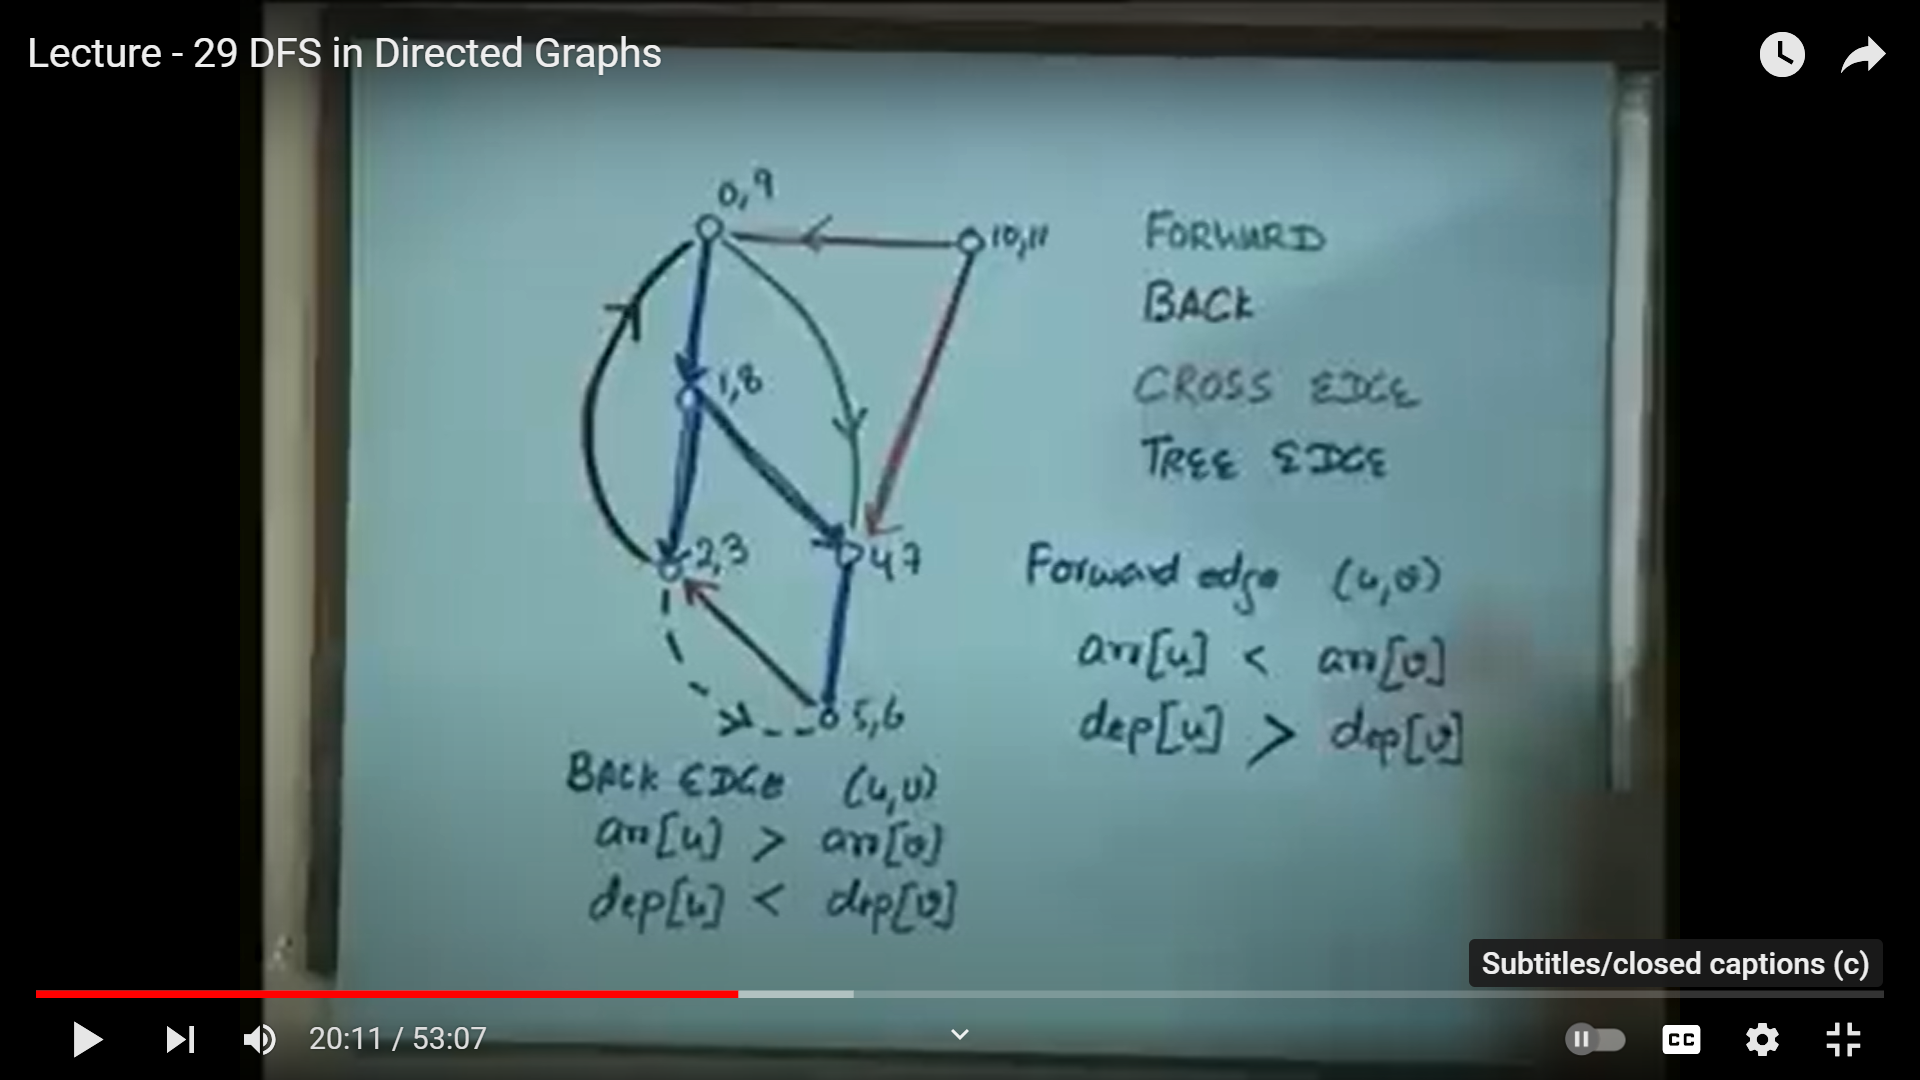 Lecture - 29 DFS in Directed Graphs
0,9
10,11
FORWARD
BACK
1,8
CROSS EDGE
TREE EDGE
2,3
4 7
Forward edge (u,v)
arr[u] < arr[v]
dep[u] > dep[v]
5,6
BACK EDGE (u,v)
arr[u] > arr[v]
dep[u] < dep[v]
Subtitles/closed captions (c)
20:11 / 53:07
CC